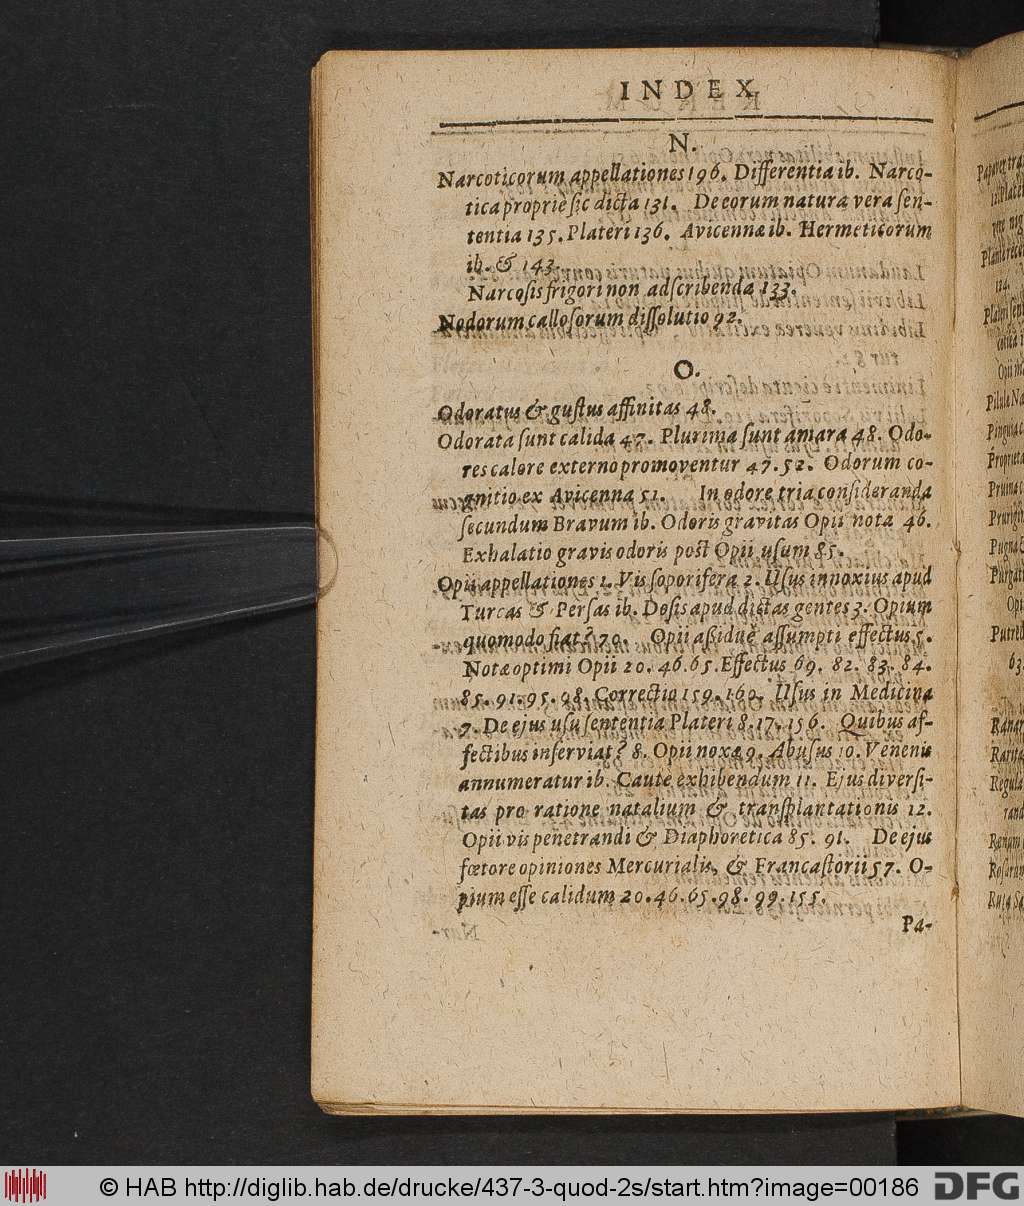 INDEX
N.
Narcoticorum appellationes 196. Differentia ib. Narco-
tica propriè sic dicta 131. De eorum natura vera sen-
tentia 135. Plateri 136. Avicennæ ib. Hermeticorum
ib. & 143.
Narcosis frigori non adscribenda 133.
Nodorum callosorum dissolutio 92.
O.
Odoratus & gustus affinitas 48.
Odorata sunt calida 47. Plurima sunt amara 48. Odo-
res calore externo promoventur 47. 52. Odorum co-
gnitio ex Avicenna 51. In odore tria consideranda
secundum Bravum ib. Odoris gravitas Opii nota 46.
Exhalatio gravis odoris post Opii usum 85.
Opii appellationes 1. Vis soporifera 2. Usus innoxius apud
Turcas & Persas ib. Dosis apud dictas gentes 3. Opium
quomodo fiat? 70. Opii aßiduè assumpti effectus 5.
Notæ optimi Opii 20. 46. 65. Effectus 69. 82. 83. 84.
85. 91. 95. 98. Correctio 159. 160. Usus in Medicina
7. De ejus usu sententia Plateri 8. 17. 156. Quibus af-
fectibus inserviat? 8. Opii noxæ 9. Abusus 10. Venenis
annumeratur ib. Caute exhibendum 11. Ejus diversi-
tas pro ratione natalium & transplantationis 12.
Opii vis penetrandi & Diaphoretica 85. 91. De ejus
fœtore opiniones Mercurialis, & Francastorii 57. O-
pium esse calidum 20. 46. 65. 98. 99. 155.
Pa-
© HAB http://diglib.hab.de/drucke/437-3-quod-2s/start.htm?image=00186
DFG